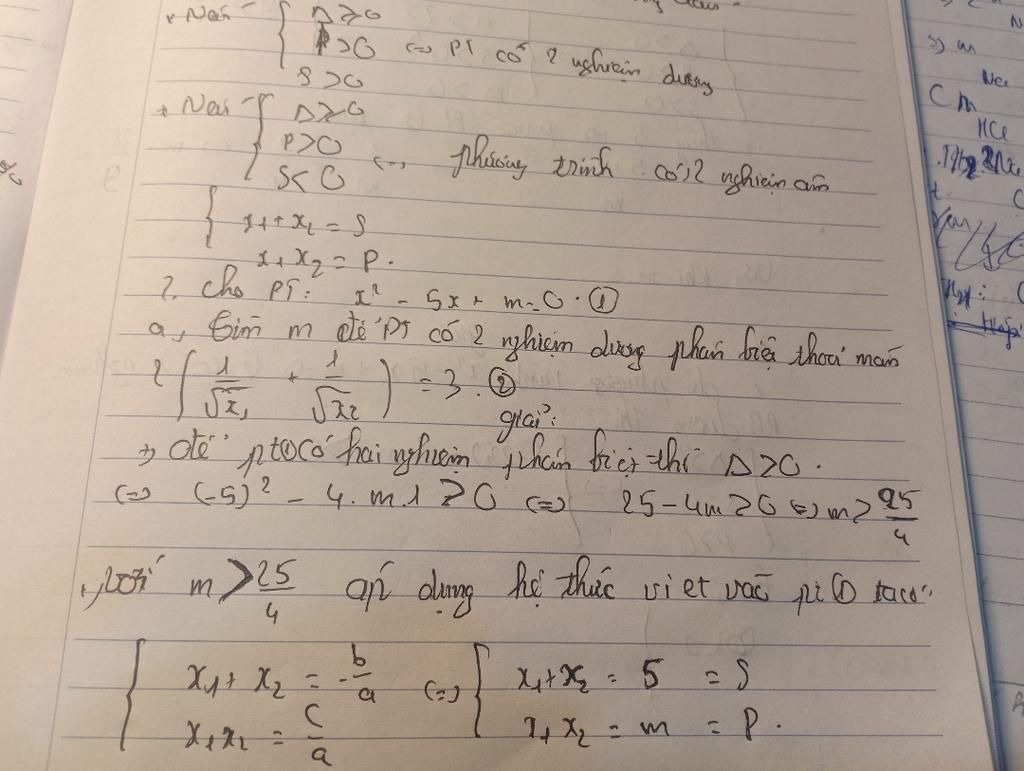 + Nếu { Δ ≥ 0
P > 0 <=> PT có 2 nghiệm dương
S > 0
+ Nếu { Δ ≥ 0
P > 0
S < 0 <=> phương trình có 2 nghiệm âm
{ x1 + x2 = S
x1 x2 = P.
2. Cho PT: x² - 5x + m = 0. ①
a, tìm m để PT có 2 nghiệm dương phân biệt thoả mãn
2 ( 1/√x1 + 1/√x2 ) = 3. ②
giải:
+, để pt ① có hai nghiệm phân biệt thì Δ > 0.
<=> (-5)² - 4.m.1 > 0 <=> 25 - 4m > 0 <=> m > 25/4
+, với m > 25/4 áp dụng hệ thức viet vào pt ① ta có:
{ x1 + x2 = -b/a <=> { x1 + x2 = 5 = S
x1 x2 = c/a x1 x2 = m = P.
=> m
C m
HCl